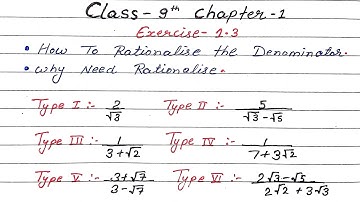 Class - 9th Chapter - 1
Exercise - 1.3
• How To Rationalise the Denominator.
• Why Need Rationalise.
Type I :- 2/√3 Type II :- 5/(√3-√5)
Type III :- 1/(3+√2) Type IV :- 1/(7+3√2)
Type V :- (3+√7)/(3-√7) Type VI :- (2√3-√5)/(2√2+3√3)